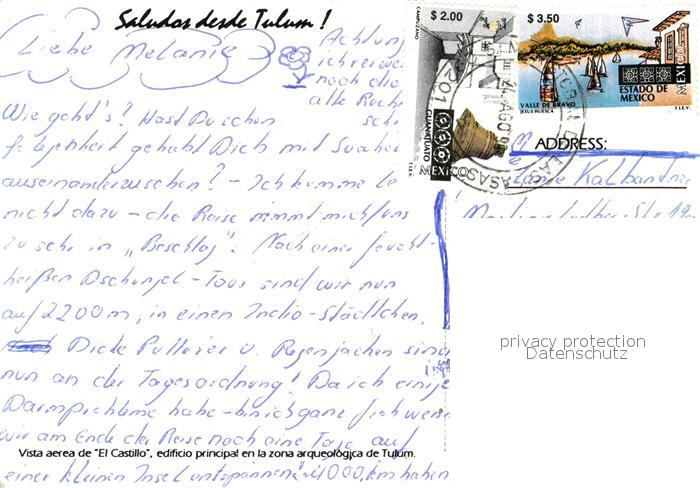 Saludos desde Tulum !
Liebe Melanie
Achtung
ich verwende
noch die
alte Rech
schr
Wie geht's? Hast Du schon
Gelegenheit gehabt Dich mit
auseinanderzusetzen? - Ich komme
nicht dazu - die Reise nimmt mich/uns
zu sehr in "Beschlag". Nach einer feucht-
heißen Dschungel-Tour sind wir nun
auf 2200 m, in einem Indio-Städtchen.
Dicke Pullover u. Regenjacken sind
nun an der Tagesordnung! Da ich einige
Darmprobleme habe bin ich ganz froh wenn
wir am Ende der Reise noch eine Tage auf
einer kleinen Insel entspannen 4000 km haben
Vista aerea de "El Castillo", edificio principal en la zona arqueològica de Tulum.
CAMPUZANO
$ 2.00
GUANAJUATO
MEXICO
T.I.E.V.
$ 3.50
VALLE DE BRAVO
JESUS HUESCA
ESTADO DE
MEXICO
MEXICO
T.I.E.V.
AGO
CASAS
ADDRESS:
Melanie Kalbandner
privacy protection
Datenschutz